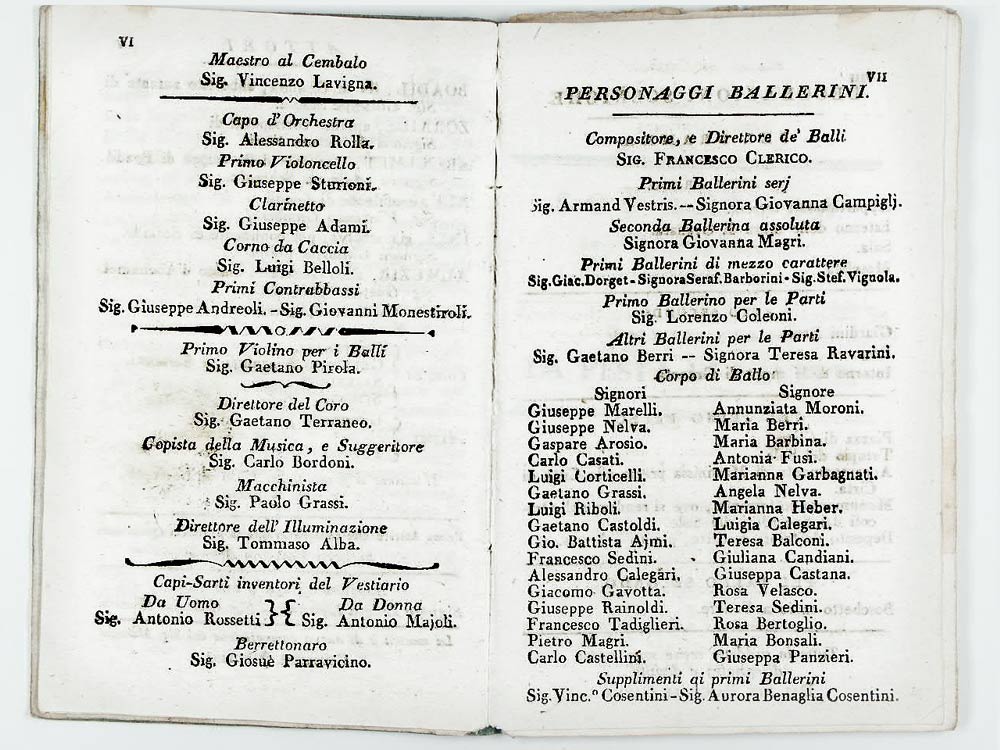 VI
Maestro al Cembalo
Sig. Vincenzo Lavigna.
Capo d'Orchestra
Sig. Alessandro Rolla.
Primo Violoncello
Sig. Giuseppe Sturioni.
Clarinetto
Sig. Giuseppe Adami.
Corno da Caccia
Sig. Luigi Belloli.
Primi Contrabbassi
Sig. Giuseppe Andreoli. - Sig. Giovanni Monestiroli.
Primo Violino per i Balli
Sig. Gaetano Pirola.
Direttore del Coro
Sig. Gaetano Terraneo.
Copista della Musica, e Suggeritore
Sig. Carlo Bordoni.
Macchinista
Sig. Paolo Grassi.
Direttore dell' Illuminazione
Sig. Tommaso Alba.
Capi-Sarti inventori del Vestiario
Da Uomo Da Donna
Sig. Antonio Rossetti }{ Sig. Antonio Majoli.
Berrettonaro
Sig. Giosuè Parravicino.
VII
PERSONAGGI BALLERINI.
Compositore, e Direttore de' Balli
SIG. FRANCESCO CLERICO.
Primi Ballerini serj
Sig. Armand Vestris. -- Signora Giovanna Campiglj.
Seconda Ballerina assoluta
Signora Giovanna Magri.
Primi Ballerini di mezzo carattere
Sig. Giac. Dorget - Signora Seraf. Barborini - Sig. Stef. Vignola.
Primo Ballerino per le Parti
Sig. Lorenzo Coleoni.
Altri Ballerini per le Parti
Sig. Gaetano Berri -- Signora Teresa Ravarini.
Corpo di Ballo
Signori Signore
Giuseppe Marelli. Annunziata Moroni.
Giuseppe Nelva. Maria Berri.
Gaspare Arosio. Maria Barbina.
Carlo Casati. Antonia Fusi.
Luigi Corticelli. Marianna Garbagnati.
Gaetano Grassi. Angela Nelva.
Luigi Riboli. Marianna Heber.
Gaetano Castoldi. Luigia Calegari.
Gio. Battista Ajmi. Teresa Balconi.
Francesco Sedini. Giuliana Candiani.
Alessandro Calegari. Giuseppa Castana.
Giacomo Gavotta. Rosa Velasco.
Giuseppe Rainoldi. Teresa Sedini.
Francesco Tadiglieri. Rosa Bertoglio.
Pietro Magri. Maria Bonsali.
Carlo Castellini. Giuseppa Panzieri.
Supplimenti ai primi Ballerini
Sig. Vinc.º Cosentini - Sig. Aurora Benaglia Cosentini.